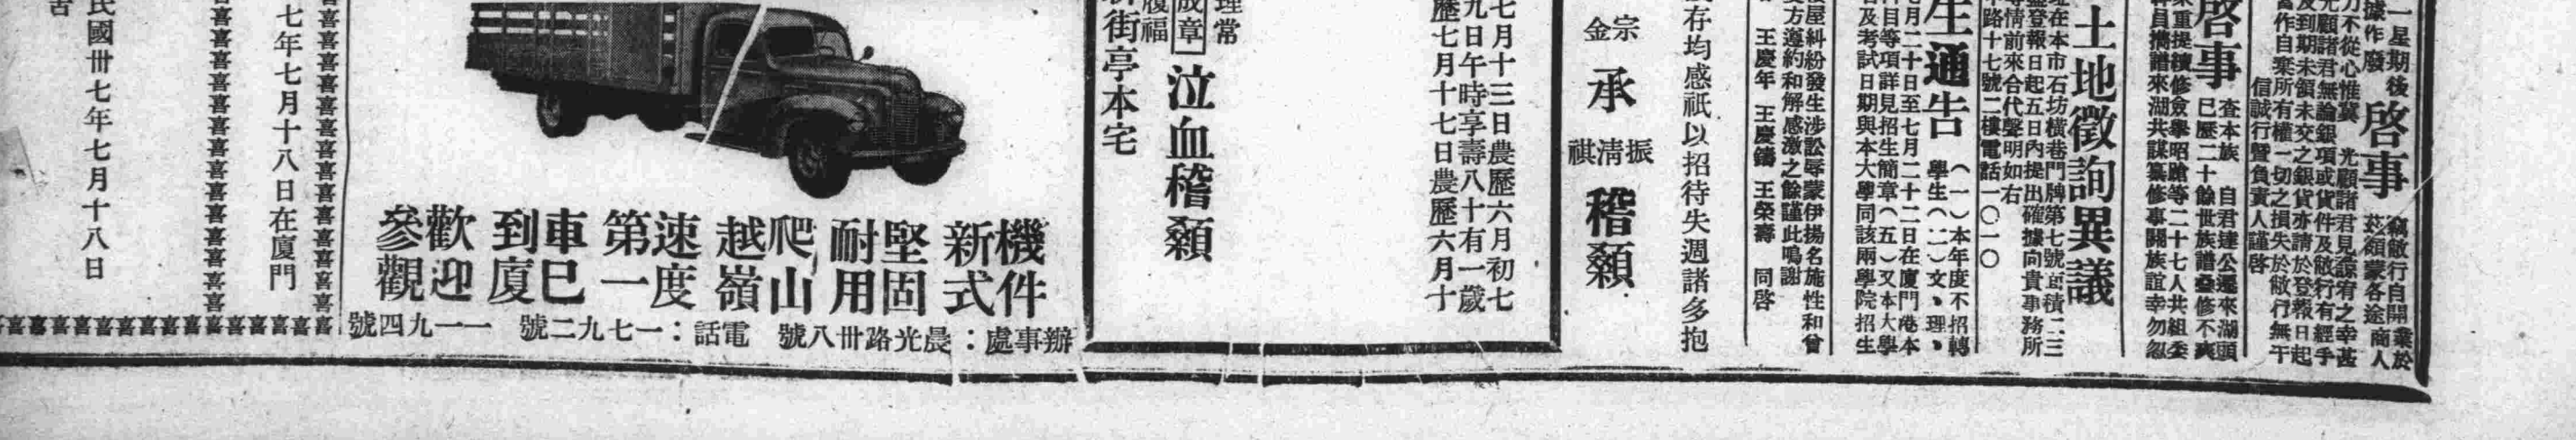 一星期後
據作廢
啓事
竊敝行自開業於
茲頟蒙各途商人
力不從心惟冀
光顧諸君見諒宥之幸甚
光顧諸君無論銀項或貨件及敝行有經手
及到期未領未交之銀貨亦請於登報日起
當作自棄所有權一切之損失於敝行無干
信誠行暨負責人謹啓
啓事
查本族
自君達公遷來湖頭
已歷二十餘世族譜叠修不爽
等二十七人共組委
員攜譜來湖共謀纂修事關族誼幸勿忽
土地徵詢異議
在本市石坊橫巷門牌第七號面積二三
登報日起五日內提出確據向貴事務所
等情前來合代聲明如右
路十七號二樓電話一〇一〇
生通告
（一）本年度不招轉
學生（二）文、理、
七月二十日至七月二十二日在廈門港本
科目等項詳見招生簡章（五）又本大學
及考試日期與本大學同該兩學院招生
屋糾紛發生涉訟辱蒙伊揚名施性和曾
方遵約和解感激之餘謹此鳴謝
王慶年 王慶鑄 王榮壽 同啓
存均感祇以招待失週諸多抱
宗金
承
振清祺
稽顙
七月十三日農歷六月初七
九日午時享壽八十有一歲
歷七月十七日農歷六月十
理常
成章
履福
泣血稽顙
新街亭本宅
機件新式
堅固耐用
爬山越嶺
速度第一
車已到廈
歡迎參觀
辦事處：晨光路卅八號 電話：一七九二號 一一九四號
七年七月十八日在廈門
民國卅七年七月十八日